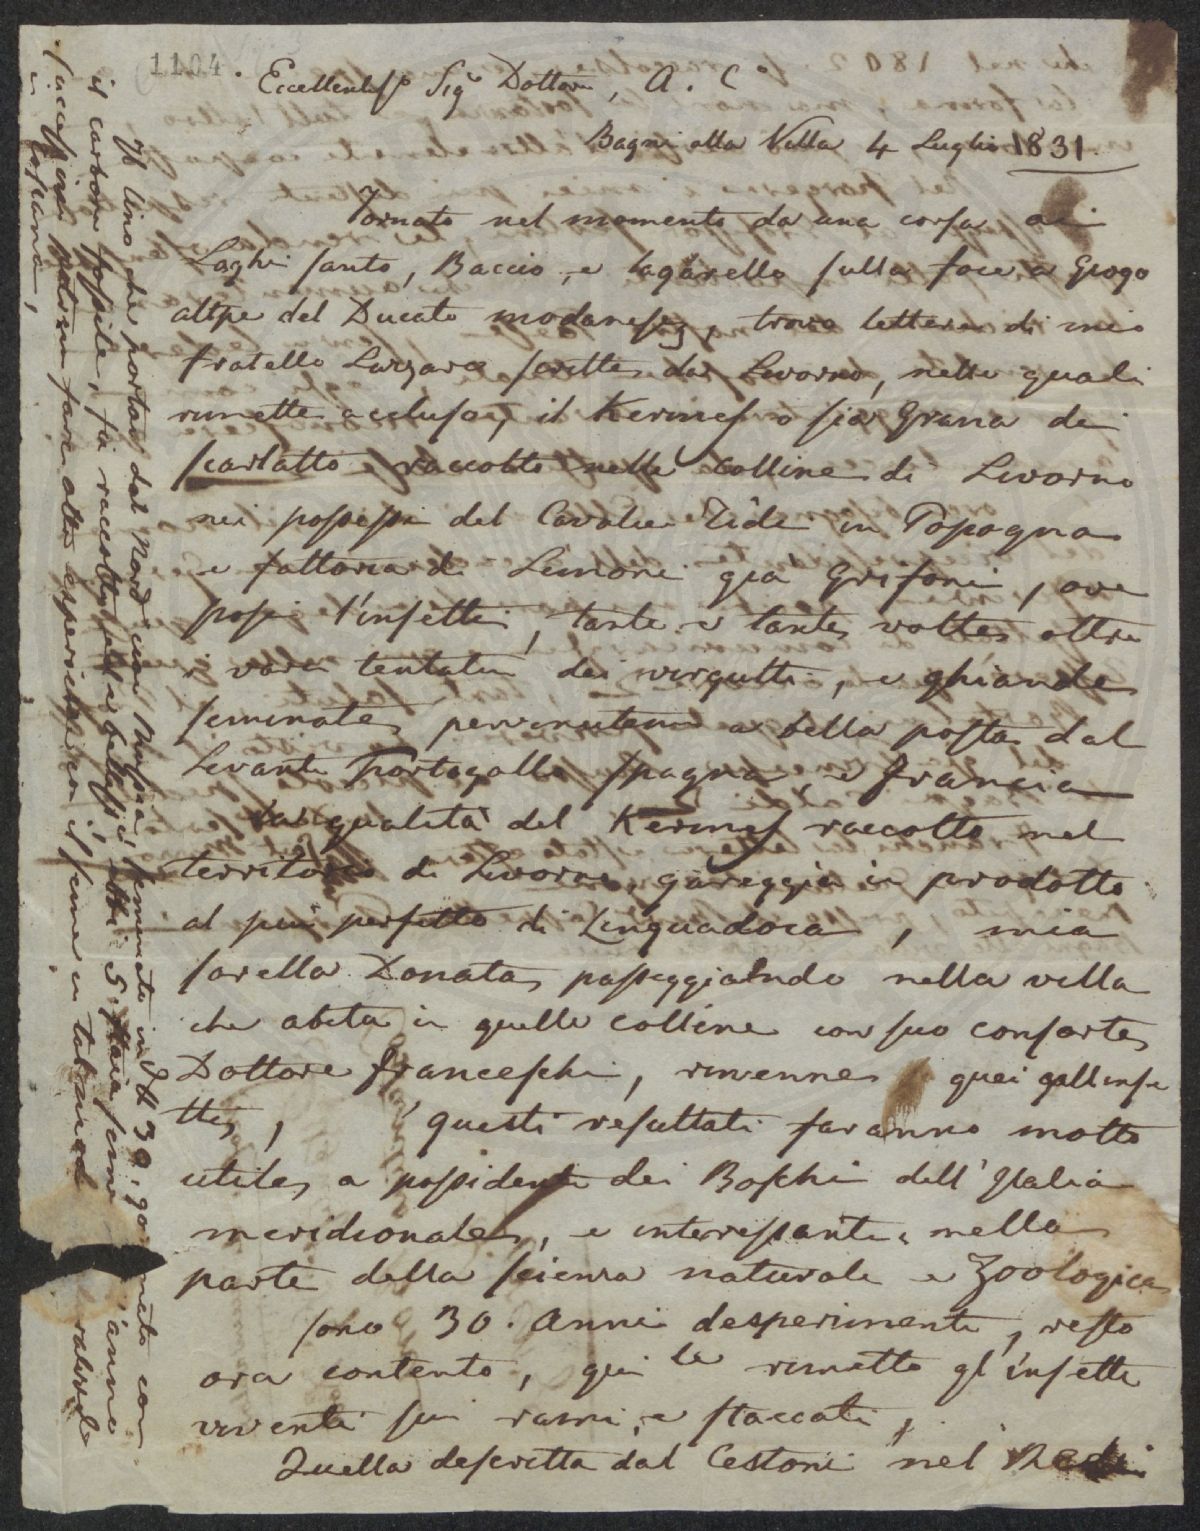 1104.
Eccellentiss.º Sig.º Dottore, A. C.
Bagni alla Villa 4 Luglio 1831.
Tornato nel momento da una corsa ai
Laghi santo, Baccio, e tagarello sulla foce a Giogo
alpe del Ducato modanese, trovo lettere di mio
fratello Lazzaro scritte da Livorno, nelle quali
rimette acclusa, il Kermes o sia Grana di
scarlatto raccolto nelle colline di Livorno
nei possessi del Cavalier in Popogna
e fattoria di Limone già Grifoni, ove
posi l'insetti, tante e tante volte oltre
i vari tentativi dei virgulti, e ghiande
seminate, pervenutemi a bella posta dal
Levante Portogallo Spagna e Francia
La qualità del Kermes raccolto nel
territorio di Livorno, gareggia in prodotto
al più perfetto di Linguadoca, mia
sorella Donata, passeggiando nella villa
che abita in quelle colline con suo consorte
Dottore Franceschi, rinvenne quei gallinse
tti, questi resultati saranno molto
utile, a possidenti dei Boschi dell'Italia
meridionale, e interessante, nella
parte della scienza naturale e Zoologica
sono 30. Anni desperimenti, resto
ora contento, qui le rimetto gl'insetti
viventi sui rami, e staccati,
Quella descritta dal Cestoni nel Redi
Il lino che portai dal Nord cioè Russia, seminato in 30. con
il carbone fossile, fu raccolto 5 staia seme anno
farne altra esperienza il seme
in Toscana,